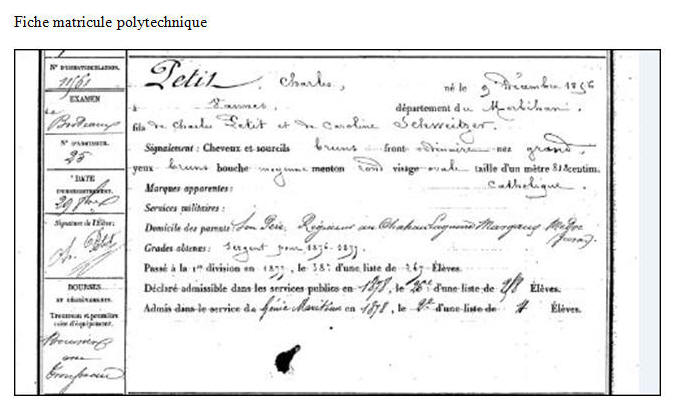 Fiche matricule polytechnique
N° D'IMMATRICULATION.
11561
EXAMEN
de
Bordeaux
N° D'ADMISSION.
25
DATE
D'ENREGISTREMENT.
29 8bre
Signature de l'Élève:
Ch. Petit
BOURSES
Trousseau et première
mise d'équipement.
Boursier
avec
trousseau
Petit, Charles, né le 9 Décembre 1856
à Vannes, département du Morbihan,
fils de Charles Petit et de Caroline Schweitzer.
Signalement: Cheveux et sourcils bruns front ordinaire nez grand,
yeux bruns bouche moyenne menton rond visage ovale taille d'un mètre 818 centim.
Marques apparentes: Catholique.
Services militaires:
Domicile des parents: Son Père, Régisseur au Chateau Margaux Médoc
Grades obtenus: Sergent pour 1876-1877.
Passé à la 1re division en 1877, le 38e d'une liste de 267 Élèves.
Déclaré admissible dans les services publics en 1878, le d'une liste de Élèves.
Admis dans le service du Génie Maritime en 1878, le 2e d'une liste de 4 Élèves.